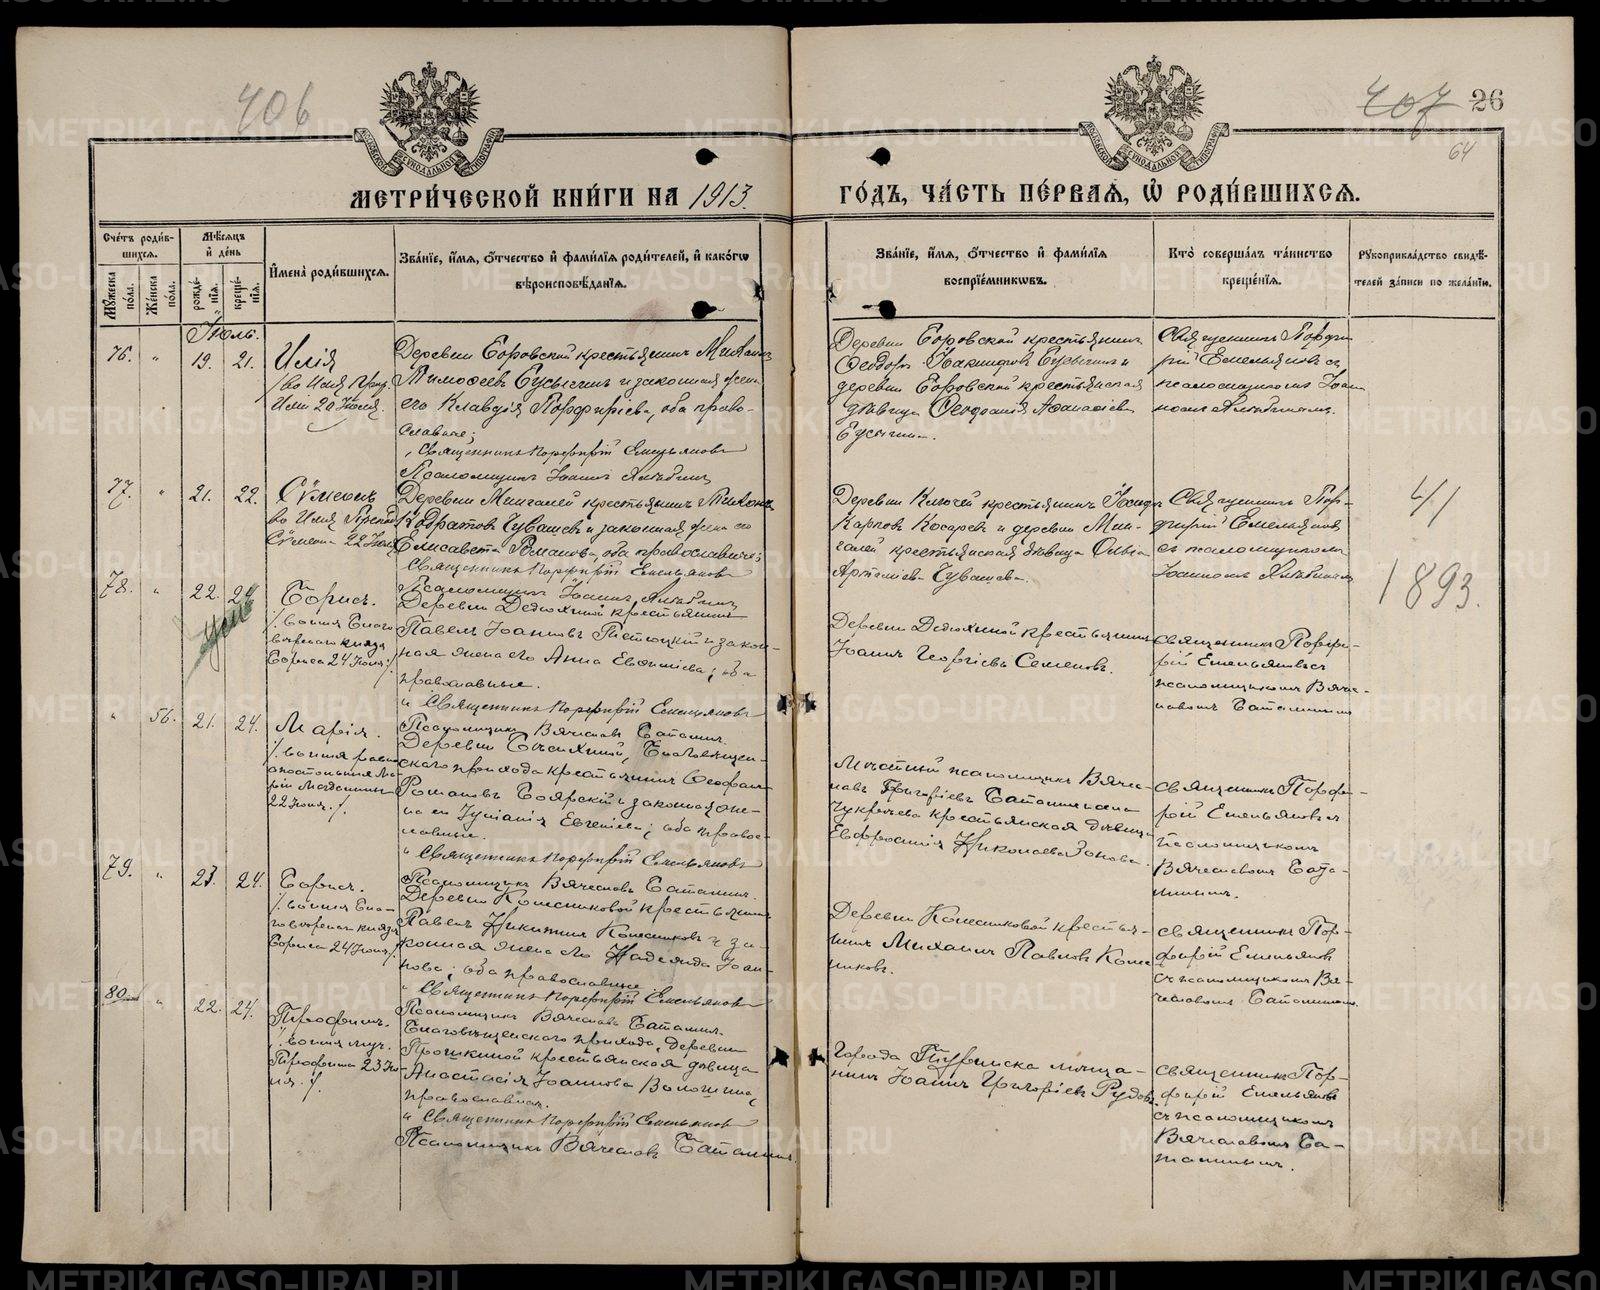 METRIKI.GASO-URAL.RU
406
407 26
64
МЕТРИ́ЧЕСКОЙ КНИ́ГИ НА 1913.
ГО́ДЪ, ЧА́СТЬ ПЕ́РВАѦ, Ѡ҆ РОДИ́ВШИХСѦ.
Сче́тъ роди́в-
шихсѧ.
Мѣ́сѧцъ
и҆ де́нь
Мꙋ́жеска по́ла.
Же́нска по́ла.
рожде́-нїѧ.
креще́-нїѧ.
И҆мена̀ роди́вшихсѧ.
Зва́нїе, и҆́мѧ, ѻ҆́тчество и҆ фамѝлїѧ роди́телей, и҆ како́гѡ
вѣроисповѣ́данїѧ.
Зва́нїе, и҆́мѧ, ѻ҆́тчество и҆ фамѝлїѧ
воспрїе́мникѡвъ.
Кто̀ соверша́лъ та́инство
креще́нїѧ.
Рꙋкоприкла́дство свидѣ́-
телей за́писи по жела́нїю.
Іюль.
76. " 19. 21. Илія
/во имя прор.
Иліи 20 Іюля.
Деревни Боровской крестьянинъ Михаилъ
Тимоѳеевъ Бусыгинъ и законная жена
его Клавдія Порфиріева, оба право-
славные;
Священникъ Порфирій Емельяновъ
Псаломщикъ Іоаннъ
Деревни Боровской крестьянинъ
Ѳеодоръ Іоакимовъ Бусыгинъ и
деревни Боровской крестьянская
дѣвица Ѳеофанія Аѳанасіева
Бусыгина.
Священникъ Порфи-
рій Емельяновъ съ
псаломщикомъ Іоан-
номъ
77. " 21. 22. Сѵмеонъ
во имя Препод.
Сѵмеона 22 Іюля
Деревни Мингалей крестьянинъ Тихонъ
Кодратовъ Чувашевъ и законная жена его
Елисавета Романова, оба православные;
Священникъ Порфирій Емельяновъ
Псаломщикъ Іоаннъ
Деревни Ключей крестьянинъ Исидоръ
Карповъ Косаревъ и деревни Мин-
галей крестьянская дѣвица Олвіа
Артеміева Чувашева.
Священникъ Пор-
фирій Емельяновъ
съ псаломщикомъ
Іоанномъ
4/1
1893.
78. " 22. 24 Борисъ.
/во имя Благо-
вѣрнаго князя
Бориса 24 Іюля/
Деревни Дедюхиной крестьянинъ
Павелъ Іоанновъ и закон-
ная жена его Анна Евѳиміева; оба
православные.
Священникъ Порфирій Емельяновъ
Псаломщикъ Вячеславъ Баталинъ.
Деревни Дедюхиной крестьянинъ
Іоаннъ Георгіевъ Семеновъ.
Священникъ Порфи-
рій Емельяновъ съ
псаломщикомъ Вяче-
славомъ Баталинымъ
" 56. 21. 24. Марія.
/во имя равно-
апостольныя Ма-
ріи Магдалины
22 Іюля./
Деревни Бѣсихиной, Благовѣщен-
скаго прихода крестьянинъ Ѳеофанъ
Романовъ Боярскій и законная же-
на его Іуліанія Евгеніева; оба право-
славные.
Священникъ Порфирій Емельяновъ
Псаломщикъ Вячеславъ Баталинъ.
Мѣстный псаломщикъ Вяче-
славъ Григоріевъ Баталинъ и села
Чукрѣева крестьянская дѣвица
Евфросинія Николаева Зонова.
Священникъ Порфи-
рій Емельяновъ съ
псаломщикомъ
Вячеславомъ Бата-
линымъ.
79. " 23. 24. Борисъ.
/во имя Бла-
говѣрнаго князя
Бориса 24 Іюля/
Деревни Колесниковой крестьянинъ
Павелъ Никитинъ Колесниковъ и за-
конная жена его Надежда Іоан-
нова; оба православные
Священникъ Порфирій Емельяновъ
Псаломщикъ Вячеславъ Баталинъ.
Деревни Колесниковой крестья-
нинъ Михаилъ Павловъ Колес-
никовъ.
Священникъ Пор-
фирій Емельяновъ
съ псаломщикомъ Вя-
чеславомъ Баталинымъ.
80 " 22. 24. Трофимъ.
/во имя муч.
Трофима 23 Ію-
ля./
Благовѣщенскаго прихода, деревни
Прошкиной крестьянская дѣвица
Анастасія Іоаннова Волошина,
православная.
Священникъ Порфирій Емельяновъ
Псаломщикъ Вячеславъ Баталинъ.
Города Туринска мѣща-
нинъ Іоаннъ Григоріевъ Рудовъ.
Священникъ Пор-
фирій Емельяновъ
съ псаломщикомъ
Вячеславомъ Ба-
талинымъ.